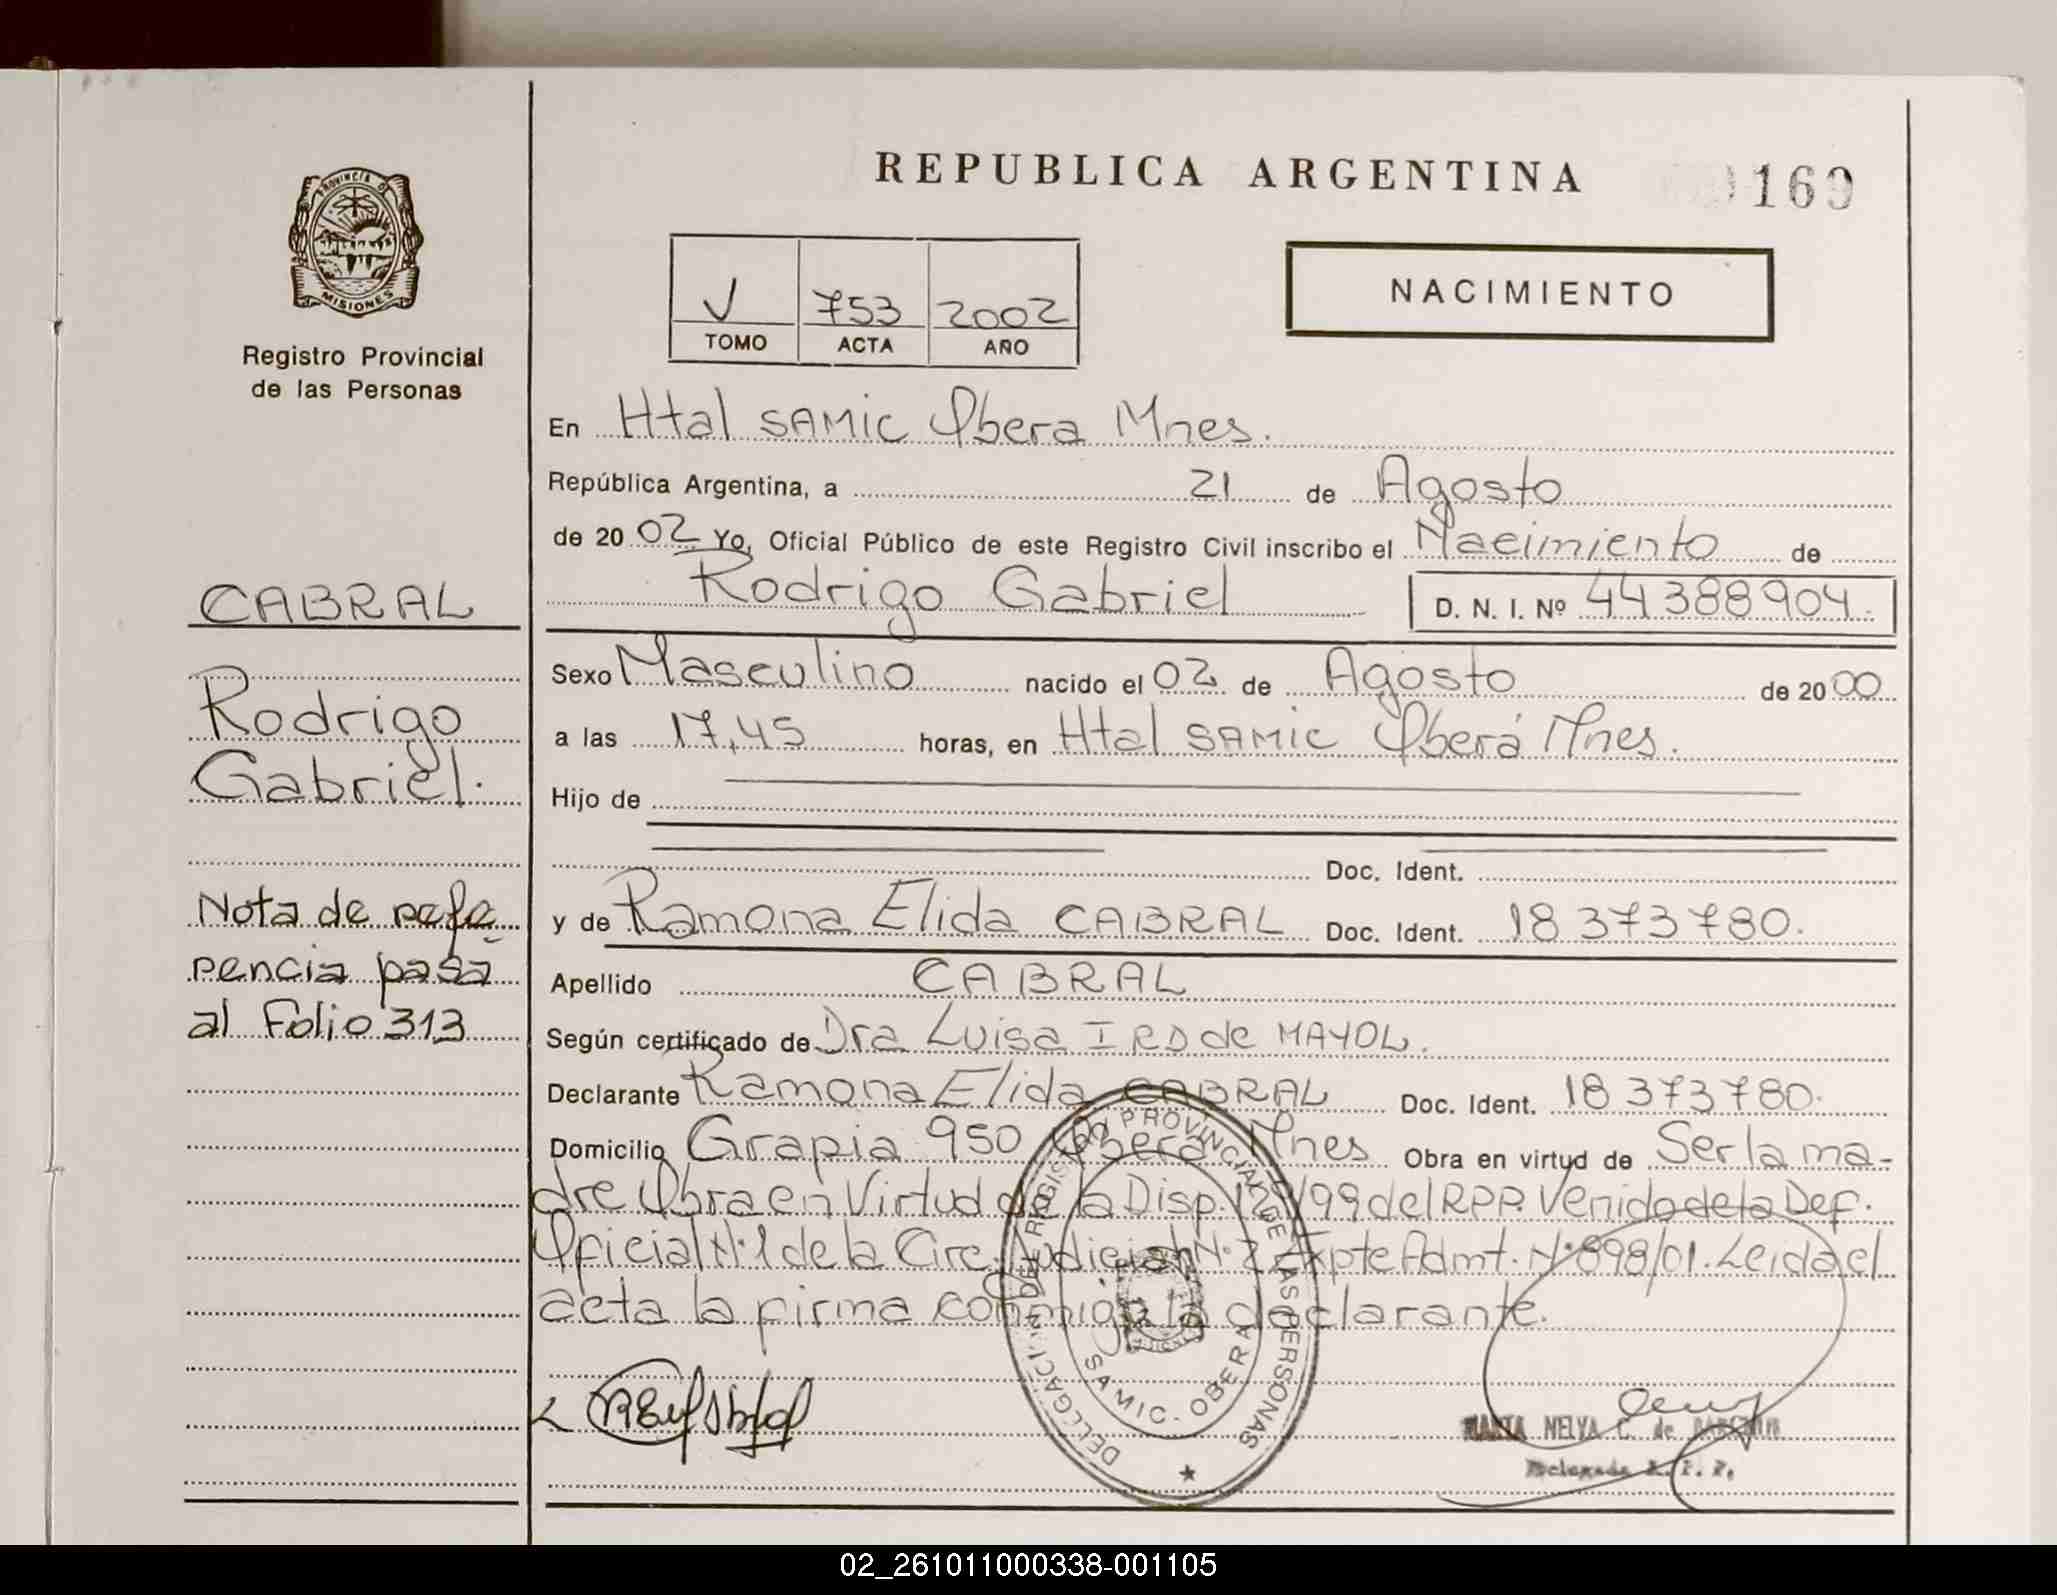 REPUBLICA ARGENTINA
169
PROVINCIA DE
MISIONES
Registro Provincial
de las Personas
NACIMIENTO
V 753 2002
TOMO ACTA AÑO
En Htal SAMIC Oberá Mnes.
República Argentina, a 21 de Agosto
de 20 02 Yo, Oficial Público de este Registro Civil inscribo el Nacimiento de
Rodrigo Gabriel D. N. I. Nº 44388904.
CABRAL
Rodrigo
Gabriel.
Sexo Masculino nacido el 02 de Agosto de 20 00
a las 17,45 horas, en Htal SAMIC Oberá Mnes.
Hijo de
Doc. Ident.
y de Ramona Elida CABRAL Doc. Ident. 18 373780.
Nota de refe
rencia pasa
al Folio 313
Apellido CABRAL
Según certificado de Dra Luisa I RD de MAYOL.
Declarante Ramona Elida CABRAL Doc. Ident. 18 373780.
Domicilio Grapia 950 Oberá Mnes Obra en virtud de Ser la ma-
dre Obra en Virtud de la Disp. /99 del RPP. Venido de la Def.
Oficial Nº1 de la Circ. Judicial Nº 2 Expte Admt. Nº 898/01. Leida el
acta la firma conmigo la declarante.
DELEGACION DEL REGISTRO PROVINCIAL DE LAS PERSONAS
SAMIC - OBERA
NELVA C. de
Delegada R. P. P.
02_261011000338-001105